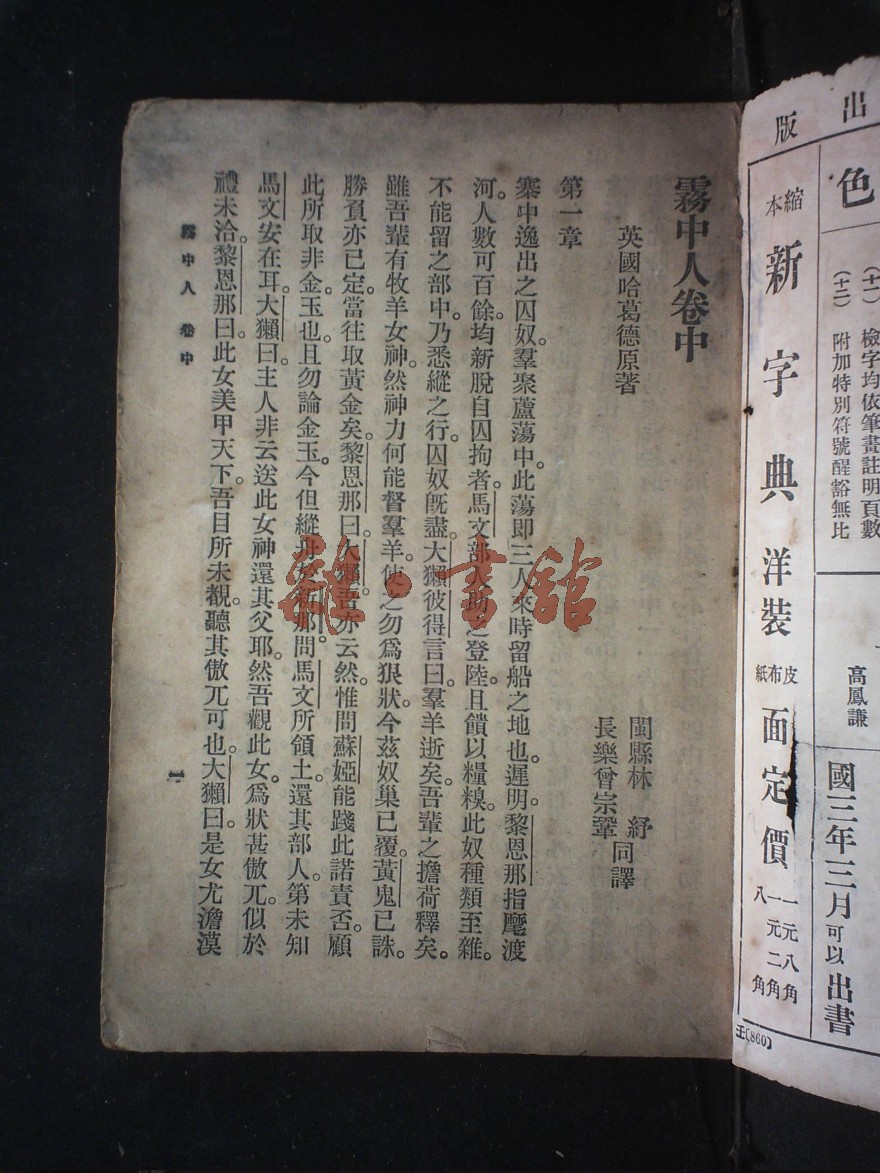 霧中人卷中
英國哈葛德原著
閩縣林　紓
長樂曾宗鞏
同譯
第一章
寨中逸出之囚奴。羣聚蘆蕩中。此蕩即三人來時留船之地也。遲明。黎恩那指麾渡
河。人數可百餘。均新脫自囚拘者。馬文部人助之登陸。且饋以糧糗。此奴種類至雜。
不能留之部中。乃悉縱之行。囚奴旣盡。大獺彼得言曰。羣羊逝矣。吾輩之擔荷釋矣。
雖吾輩有牧羊女神。然神力何能督羣羊。使之勿爲狠狀。今茲奴巢已覆。黃鬼已誅。
勝負亦已定。當往取黃金矣。黎恩那曰。大獺。吾亦云然。惟問蘇婭能踐此諾責否。顧
此所取非金玉也。且勿論金玉。今但縱舟於新那。問馬文所領土。還其部人。第未知
馬文安在耳。大獺曰。主人非云送此女神還其父耶。然吾觀此女。爲狀甚傲兀。似於
禮未洽。黎恩那曰。此女美甲天下。吾目所未覩。聽其傲兀可也。大獺曰。是女尤澹漠
霧中人　卷中
一
雜·書館
出
版
色
縮本
新字典
洋裝
皮布紙
面定價
一元八角
一元二角
八角
（十一）檢字均依筆畫註明頁數
（十二）附加特別符號醒豁無比
高鳳謙
國三年三月可以出書
壬(860)